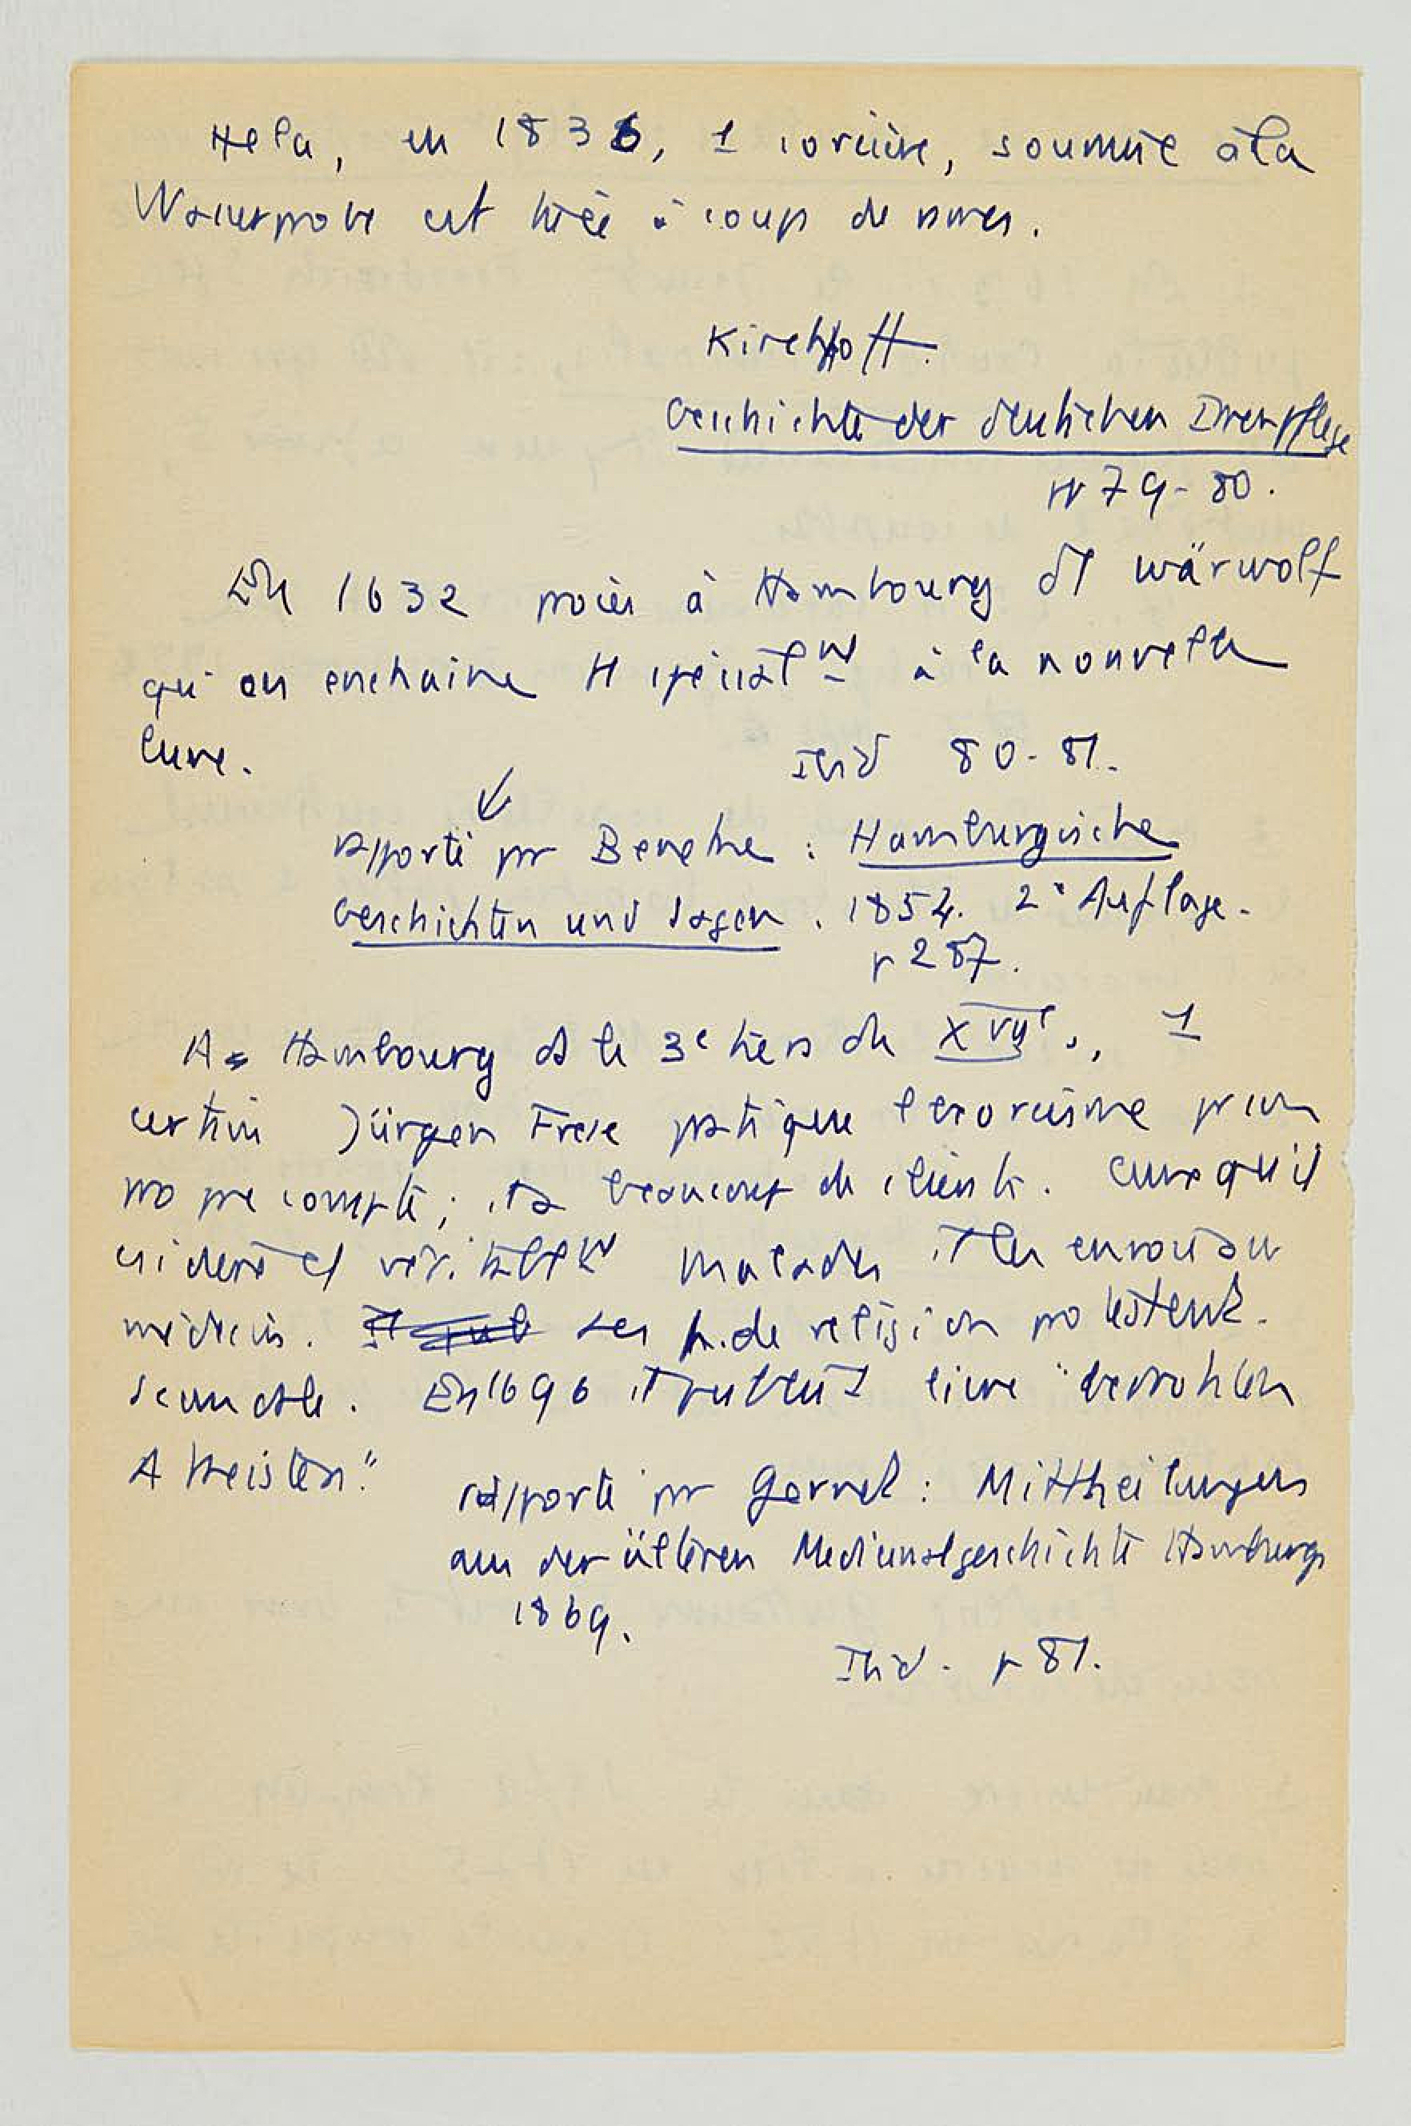 Hela, en 1836, 1 sorcière, soumise à la
Wasserprobe est tuée à coup de rames.
Kirchhoff.
Geschichte der deutschen Irrenpflege
pp 79-80.
En 1632 procès à Hambourg d'1 wärwolf
qu'on enchaine spécialᵗ à la nouvelle
lune.
Ibid 80-81.
rapporté pr Beneke : Hamburgische
Geschichten und Sagen. 1854. 2ᵉ Auflage.
p 287.
A Hambourg ds le 3e tiers du XVIIᵉ s., 1
certain Jürgen Frese pratique l'exorcisme pr son
propre compte ; il a beaucoup de clients. Ceux qu'il
considère cō véritablᵗ malades il les envoie au
médecin. de religion protestent.
scandale. En 1696 il publie 1 livre "
Atheisten."
rapporté pr Gernet : Mittheilungen
aus der älteren Medicinalgeschichte Hamburgs
1869.
Ibid. p 81.